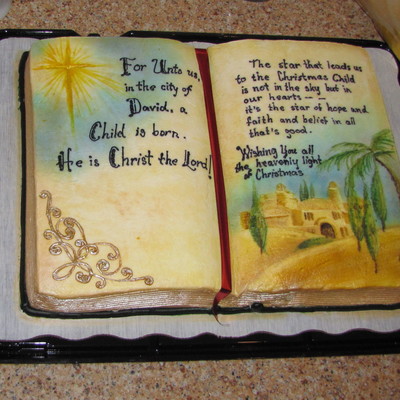 For Unto us,
in the city of
David, a
Child is born.
He is Christ the Lord!
The star that leads us
to the Christmas Child
is not in the sky but in
our hearts -- --
it's the star of hope and
faith and belief in all
that's good.
Wishing You all
the heavenly light
of Christmas